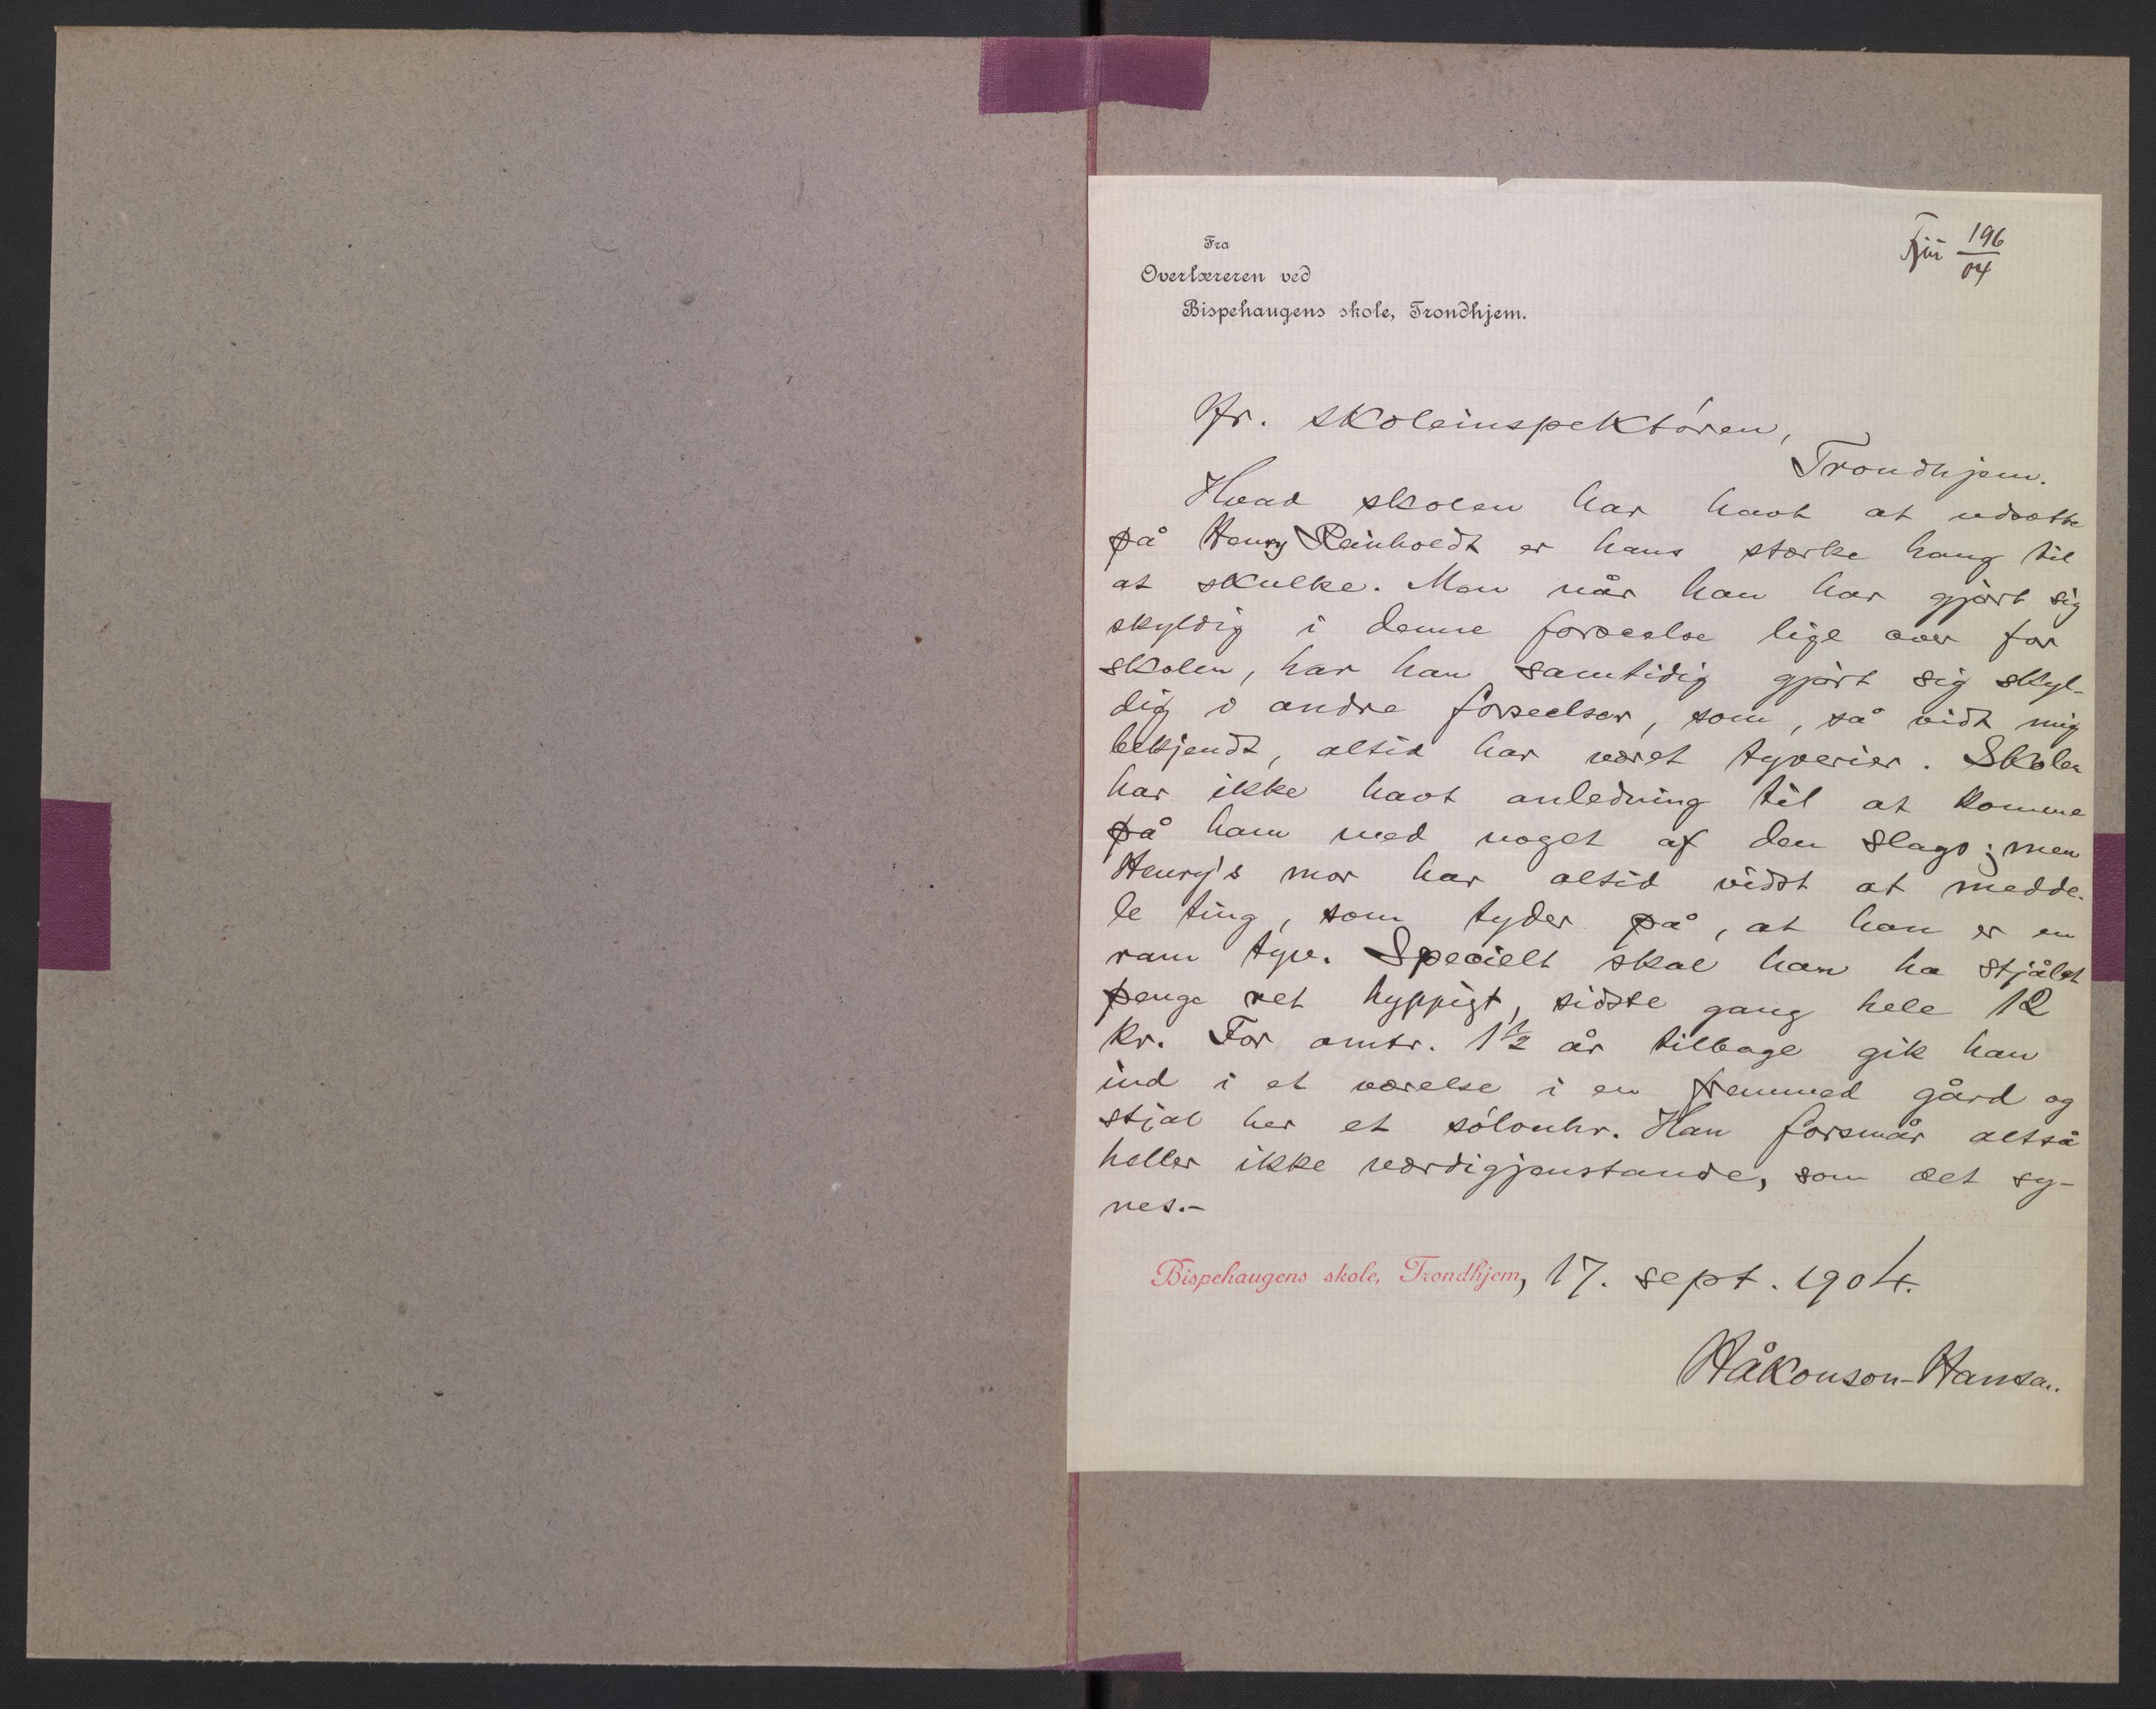 Fra
Overlæreren ved
Bispehaugens skole, Trondhjem.
196
04
Hr. skoleinspektören,
Trondhjem.
Hvad skolen har havt at udsætte
på Henry Reinholdt er hans stærke hang til
at skulke. Men når han har gjört sig
skyldig i denne forseelse lige over for
skolen, har han samtidig gjört sig skyl-
dig i andre forseelser, som, så vidt mig
bekjendt, altid har været tyverier. Skolen
har ikke havt anledning til at komme
på ham med noget af den slags; men
Henry's mor har altid vidst at medde-
le ting, som tyder på, at han er en
ram tyv. Specielt skal han ha stjålet
penge ret hyppigt, sidste gang hele 12
kr. For omtr. 1½ år tilbage gik han
ind i et værelse i en fremmed gård og
stjal her et sölvuhr. Han forsmår altså
heller ikke værdigjenstande, som det sy-
nes.-
Bispehaugens skole, Trondhjem, 17. sept. 1904.
Håkonson-Hansen.